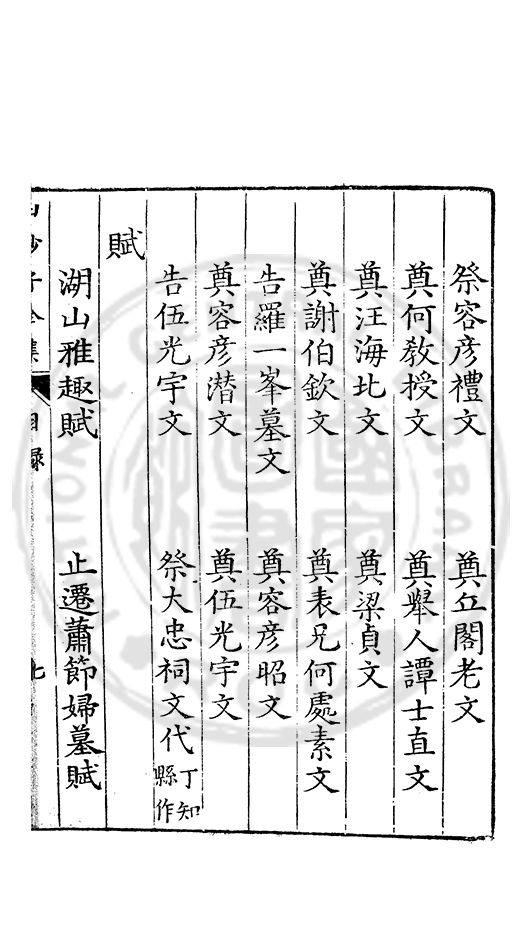 祭容彥禮文　奠丘閣老文
奠何敎授文　奠舉人譚士直文
奠汪海北文　奠梁貞文
奠謝伯欽文　奠表兄何處素文
告羅一峯墓文　奠容彥昭文
奠容彥潛文　奠伍光宇文
告伍光宇文　祭大忠祠文代丁知縣作
賦
湖山雅趣賦　止遷蕭節婦墓賦
子全集　目錄　七